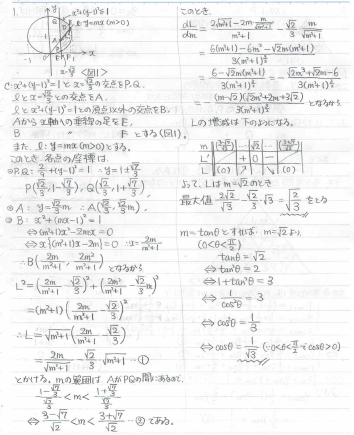 1.
x²+(y-1)²=1
l: y=mx (m>0)
x=√2/3 <図1>
C: x²+(y-1)²=1 と x=√2/3 の交点をP,Q.
l と x=√2/3 との交点をA.
l と x²+(y-1)²=1 との原点以外の交点をB.
Aから x軸への垂線の足をE,
B 〃 F とする(図1).
また, l: y=mx (m>0) とする.
このとき, 各点の座標は,
P,Q: 2/9+(y-1)²=1 ∴y=1±√7/3
P(√2/3, 1-√7/3), Q(√2/3, 1+√7/3)
A: y=√2/3 m ∴A(√2/3, √2/3 m),
B: x²+(mx-1)²=1
⇔(m²+1)x²-2mx=0
⇔x{(m²+1)x-2m}=0 ∴x=2m/(m²+1)
∴B(2m/(m²+1), 2m²/(m²+1)) となるから
L²=(2m/(m²+1)-√2/3)²+(2m²/(m²+1)-√2/3 m)²
=(m²+1)(2m/(m²+1)-√2/3)²
∴L=√(m²+1)(2m/(m²+1)-√2/3)
=2m/√(m²+1)-√2/3 √(m²+1) …①
とかける. mの範囲は AがPQの間にあるので,
(1-√7/3)/(√2/3)<m<(1+√7/3)/(√2/3)
⇔(3-√7)/√2<m<(3+√7)/√2 …② である.
このとき,
dL/dm=(2√(m²+1)-2m m/√(m²+1))/(m²+1)-√2/3 m/√(m²+1)
=(6(m²+1)-6m²-√2m(m²+1))/(3(m²+1)^(3/2))
=(6-√2m(m²+1))/(3(m²+1)^(3/2))=-(√2m³+√2m-6)/(3(m²+1)^(3/2))
=-(m-√2)(√2m²+2m+3√2)/(3(m²+1)^(3/2)) となるから
Lの増減は下のようになる.
m | (3-√7)/√2 … √2 … (3+√7)/√2
L' | + 0 -
L | (0) ↗ ↘ (0)
よって, Lは m=√2 のとき
最大値 2√2/√3-√2/3・√3=√(2/3) をとる
m=tanθ とすれば, m=√2 より,
(0<θ<π/2)
tanθ=√2
⇔tan²θ=2
⇔1+tan²θ=3
⇔1/cos²θ=3
⇔cos²θ=1/3
⇔cosθ=1/√3 (∵0<θ<π/2 ∴cosθ>0)